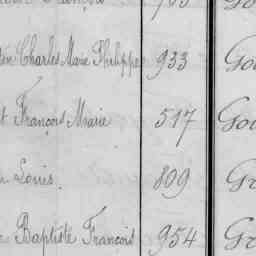 François 703 Go
Charles Marie Philippe 933 Go
François Marie 517 Go
Louis. 809 Gr
Baptiste François 954 Gr